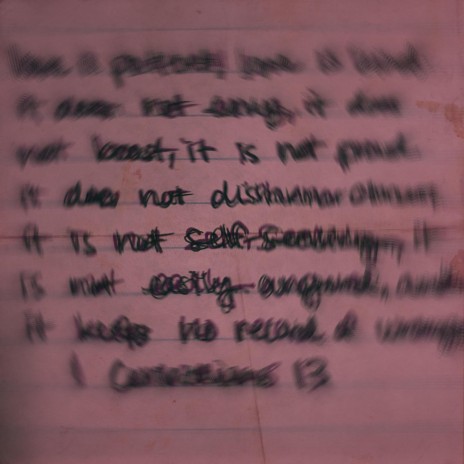 love is patient, love is kind.
it does not envy, it does
not boast, it is not proud.
it does not dishonor others,
it is not self-seeking, it
is not easily angered, and
it keeps no record of wrongs
1 Corinthians 13